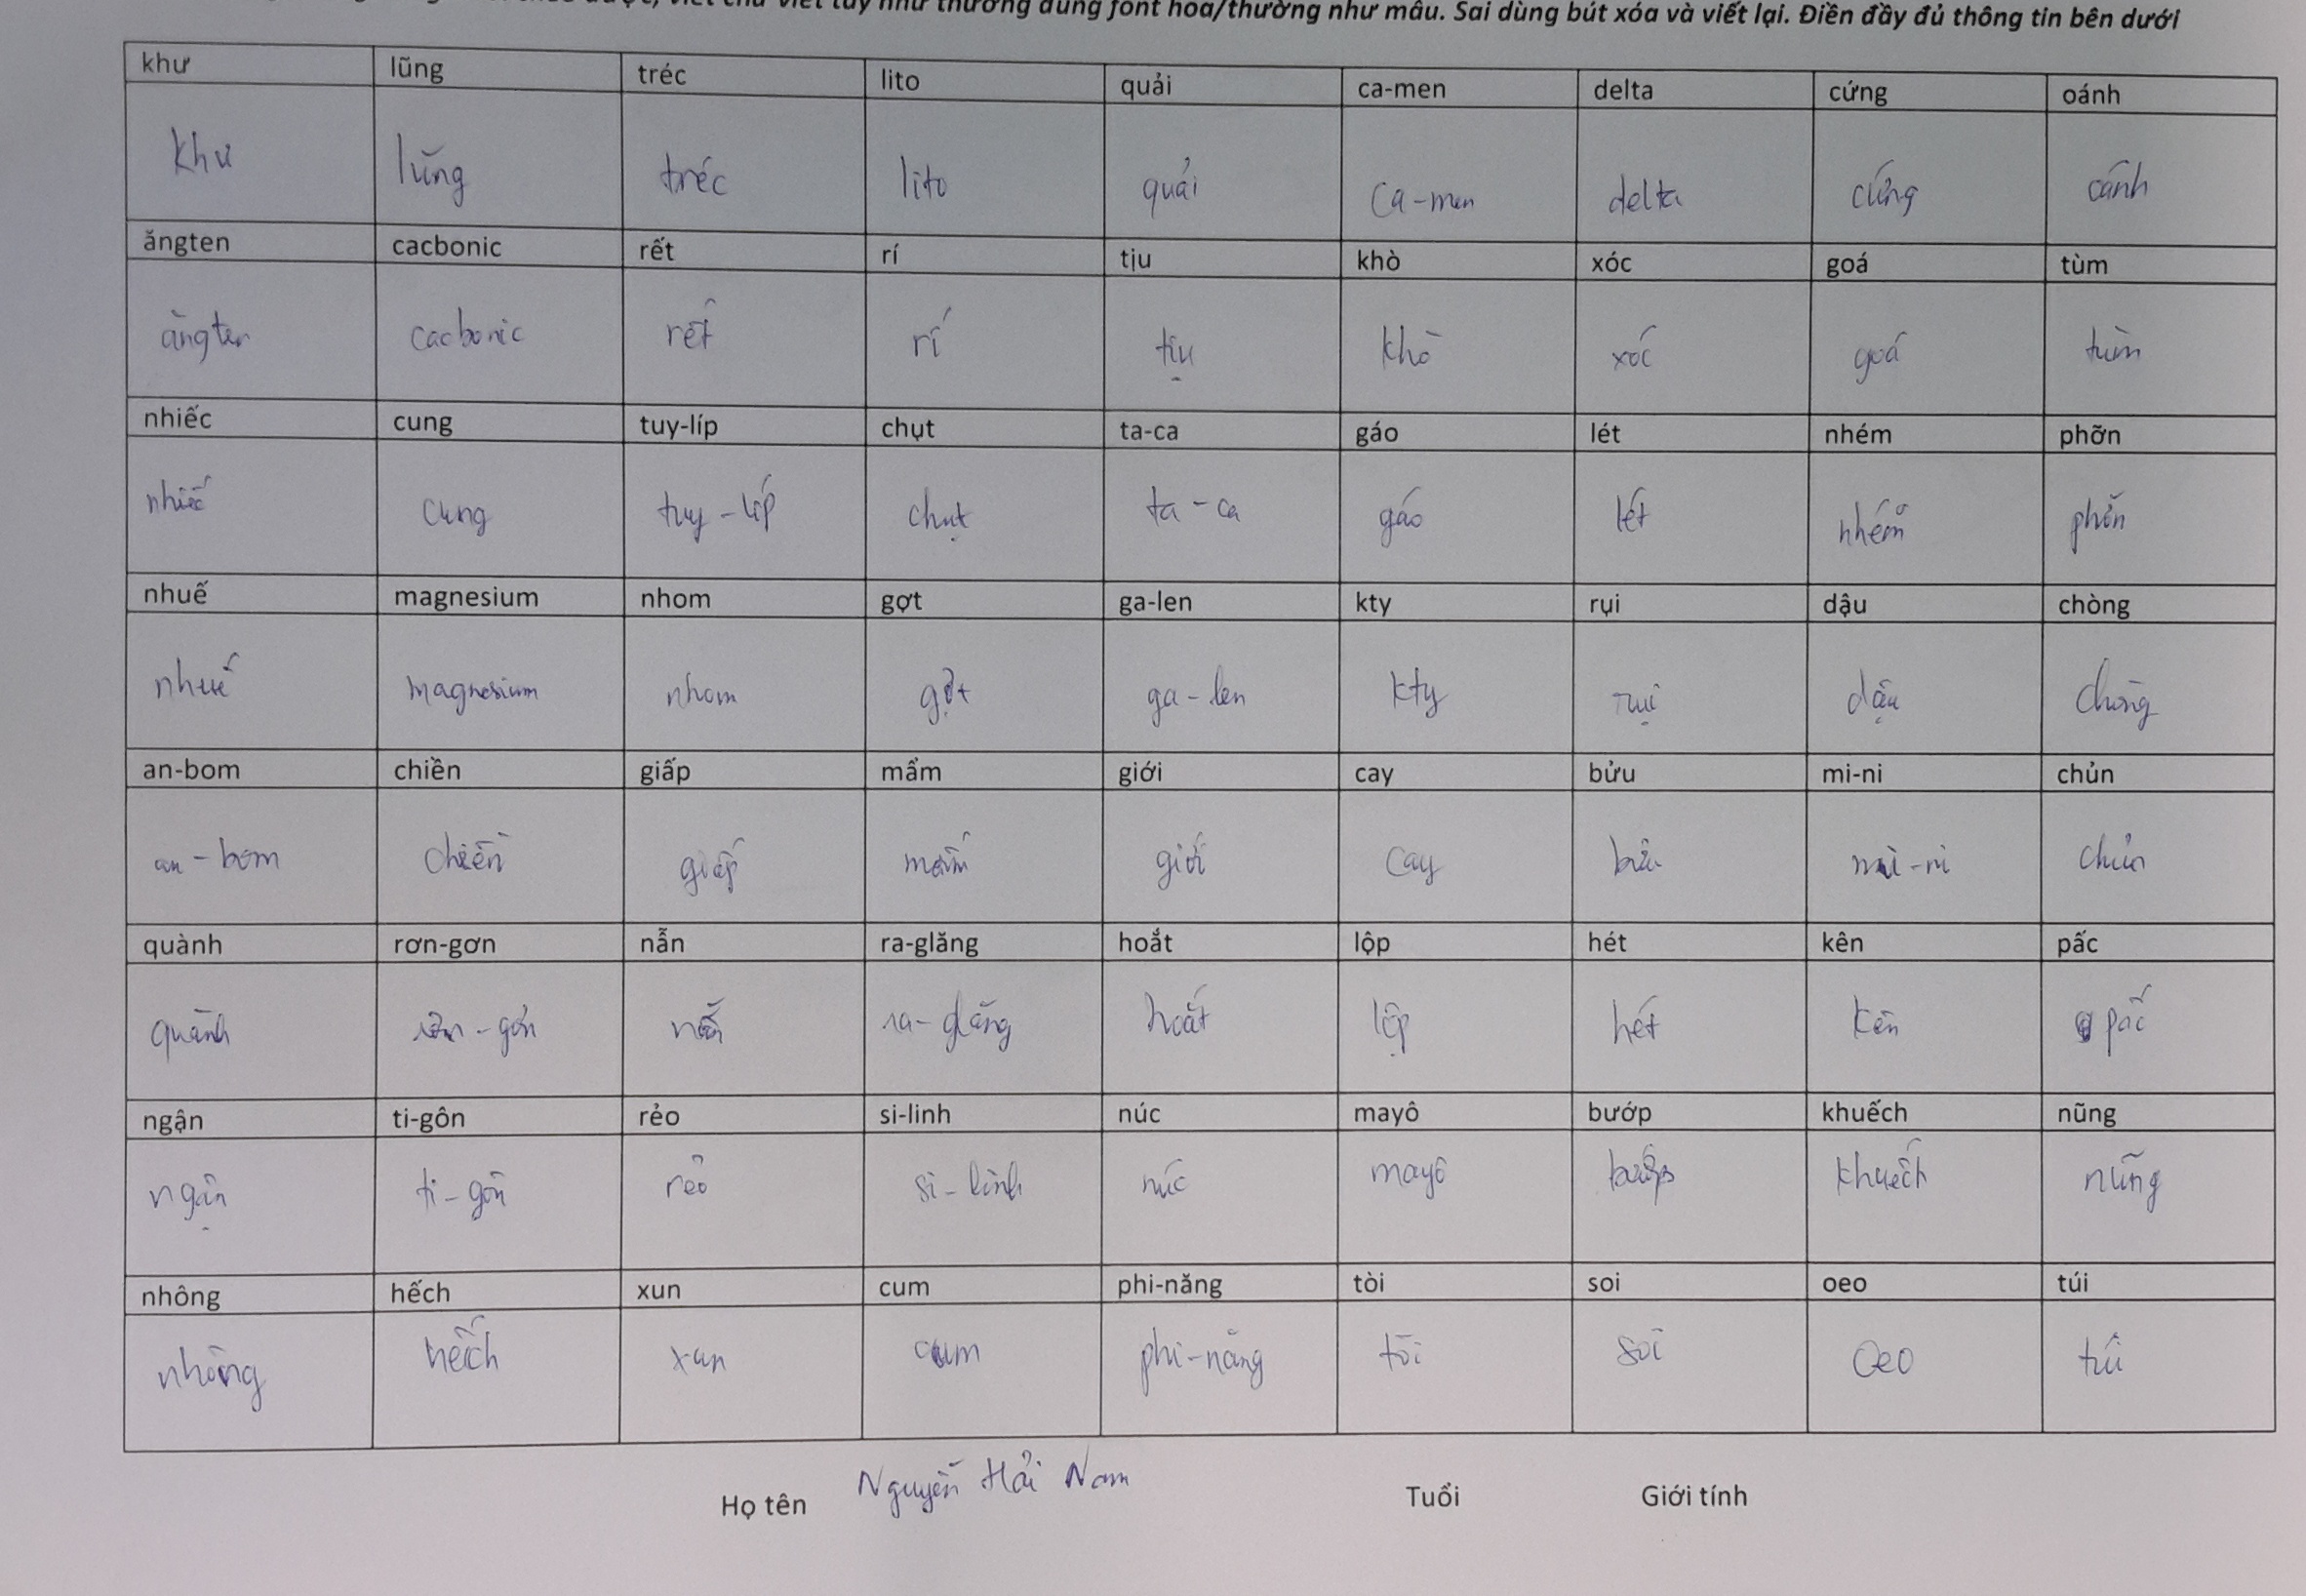 viết chữ viết tay như thường dùng font hoa/thường như mẫu. Sai dùng bút xóa và viết lại. Điền đầy đủ thông tin bên dưới
khư lũng tréc lito quải ca-men delta cứng oánh
khư lũng tréc lito quải ca-men delta cứng oánh
ăngten cacbonic rết rí tịu khò xóc goá tùm
ăngten cacbonic rết rí tịu khò xóc goá tùm
nhiếc cung tuy-líp chụt ta-ca gáo lét nhém phỡn
nhiếc cung tuy-líp chụt ta-ca gáo lét nhém phỡn
nhuế magnesium nhom gợt ga-len kty rụi dậu chòng
nhuế magnesium nhom gợt ga-len kty rụi dậu chòng
an-bom chiền giấp mẩm giới cay bửu mi-ni chủn
an-bom chiền giấp giới cay mi-ni chủn
quành rơn-gơn nẫn ra-glăng hoắt lộp hét kên pấc
quành rơn-gơn nẫn ra-glăng hoắt lộp hét kên pấc
ngận ti-gôn rẻo si-linh núc mayô bướp khuếch nũng
ngận ti-gôn rẻo si-linh núc mayô bướp khuếch nũng
nhông hếch xun cum phi-năng tòi soi oeo túi
nhông hếch xun cum phi-năng tòi soi oeo túi
Họ tên Nguyễn Hải Nam Tuổi Giới tính